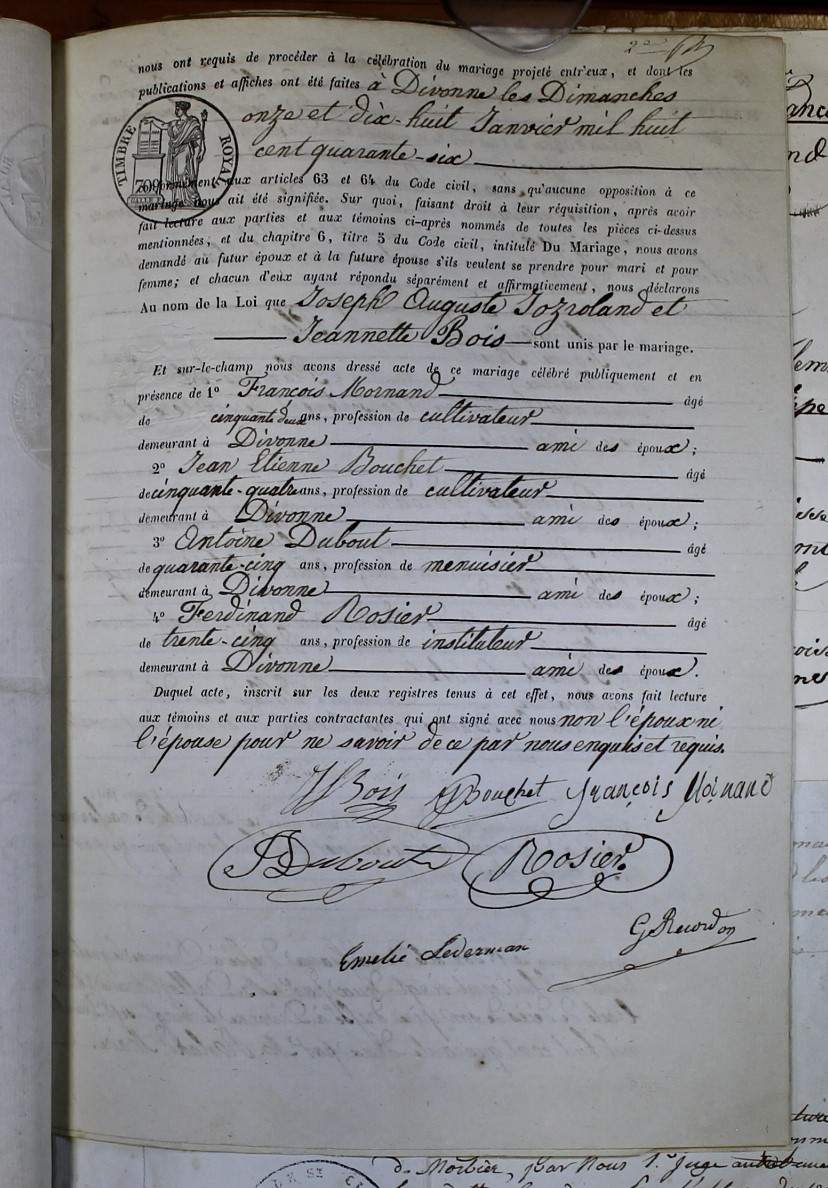 nous ont requis de procéder à la célébration du mariage projeté entr'eux, et dont les
publications et affiches ont été faites à Divonne les Dimanches
onze et dix-huit Janvier mil huit
cent quarante-six
TIMBRE ROYAL
conformément aux articles 63 et 64 du Code civil, sans qu'aucune opposition à ce
mariage nous ait été signifiée. Sur quoi, faisant droit à leur réquisition, après avoir
fait lecture aux parties et aux témoins ci-après nommés de toutes les pièces ci-dessus
mentionnées, et du chapitre 6, titre 5 du Code civil, intitulé Du Mariage, nous avons
demandé au futur époux et à la future épouse s'ils veulent se prendre pour mari et pour
femme; et chacun d'eux ayant répondu séparément et affirmativement, nous déclarons
Au nom de la Loi que Joseph Auguste Jozroland et
Jeannette Bois sont unis par le mariage.
Et sur-le-champ nous avons dressé acte de ce mariage célébré publiquement et en
présence de 1º François Mornand âgé
de cinquante deux ans, profession de cultivateur
demeurant à Divonne ami des époux;
2º Jean Etienne Bouchet âgé
de cinquante-quatre ans, profession de cultivateur
demeurant à Divonne ami des époux;
3º Antoine Dubout âgé
de quarante-cinq ans, profession de menuisier
demeurant à Divonne ami des époux;
4º Ferdinand Rosier âgé
de trente-cinq ans, profession de instituteur
demeurant à Divonne ami des époux.
Duquel acte, inscrit sur les deux registres tenus à cet effet, nous avons fait lecture
aux témoins et aux parties contractantes qui ont signé avec nous non l'époux ni
l'épouse pour ne savoir de ce par nous enquis et requis.
Bois Bouchet françois Moinand
Dubout Rosier
G Recordon
Emelie Lederman
de Morbier, par Nous 1er Juge